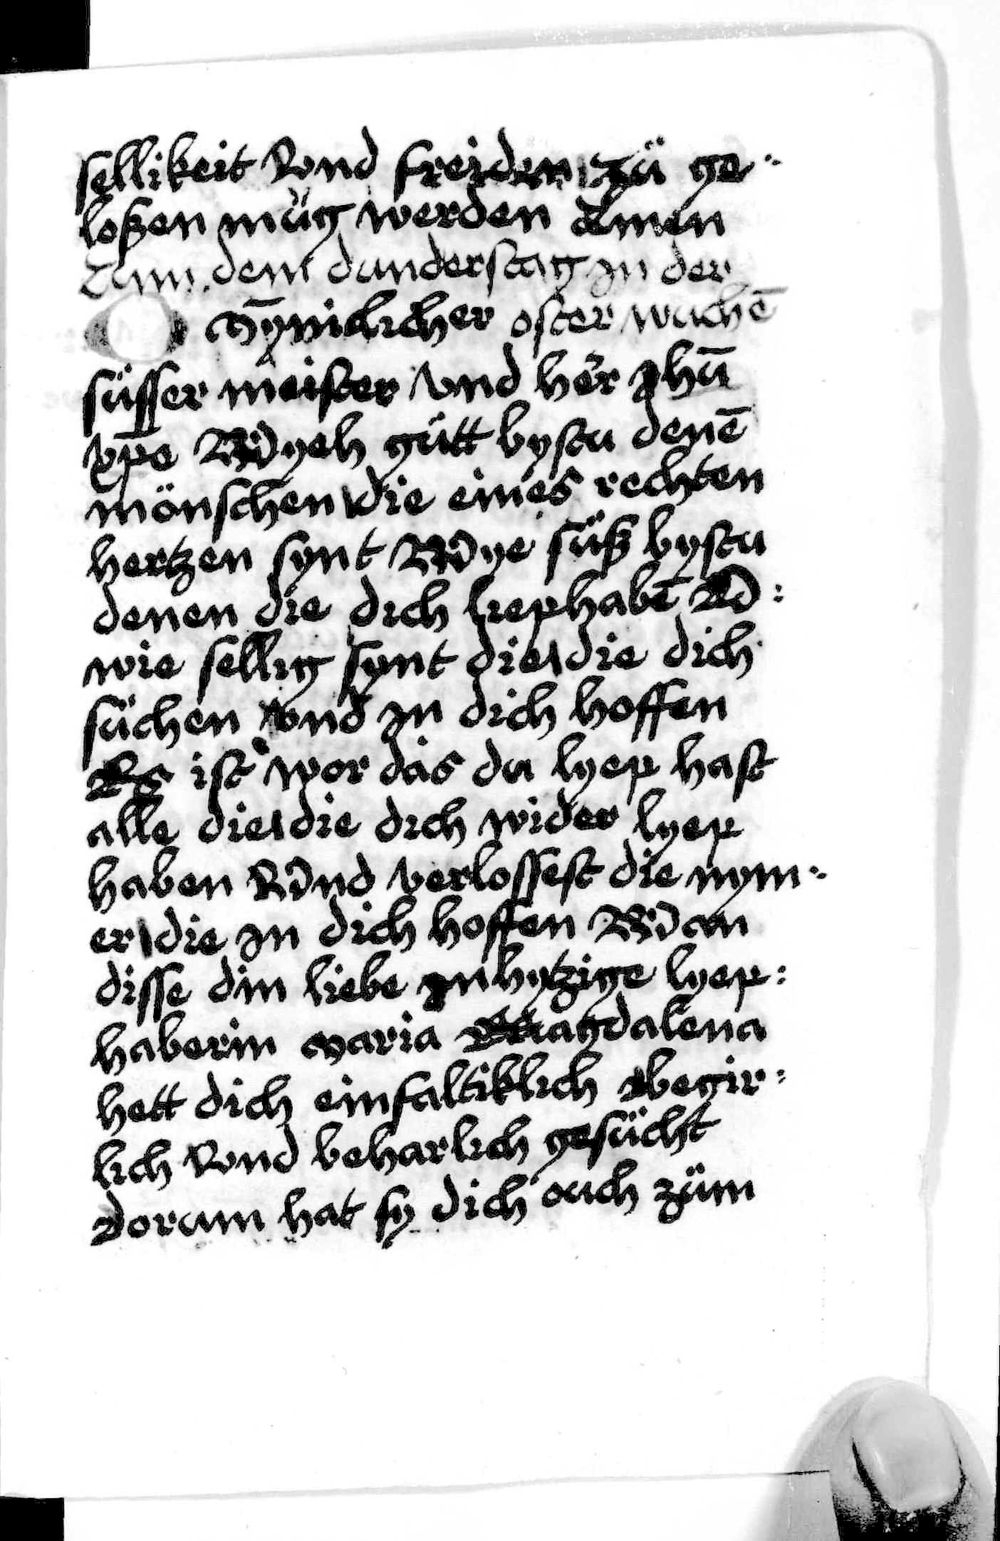 sellikeit Vnd freiden zů ge
loßen můg werden Amen
dem dunderstag in der
O Mynicklicher oster wuchē
süsser meister Vnd her jhū
xp̄e Wyeh gůtt bystu denē
mönschen die eines rechten
hertzen synt Wye süß bystu
denen die dich liephabē W:
wie sellig synt die die dich
sůchen Vnd in dich hoffen
Es ist wor das du lyep hast
alle die die dich wider lyep
haben Vnd verlossest die nym
er die in dich hoffen Wan
disse din liebe inhytzige lyep:
haberin Maria Magdalena
hett dich einfaltiklich begir:
lich Vnd beharlich gesůcht
Dorum hat sy dich ouch zům